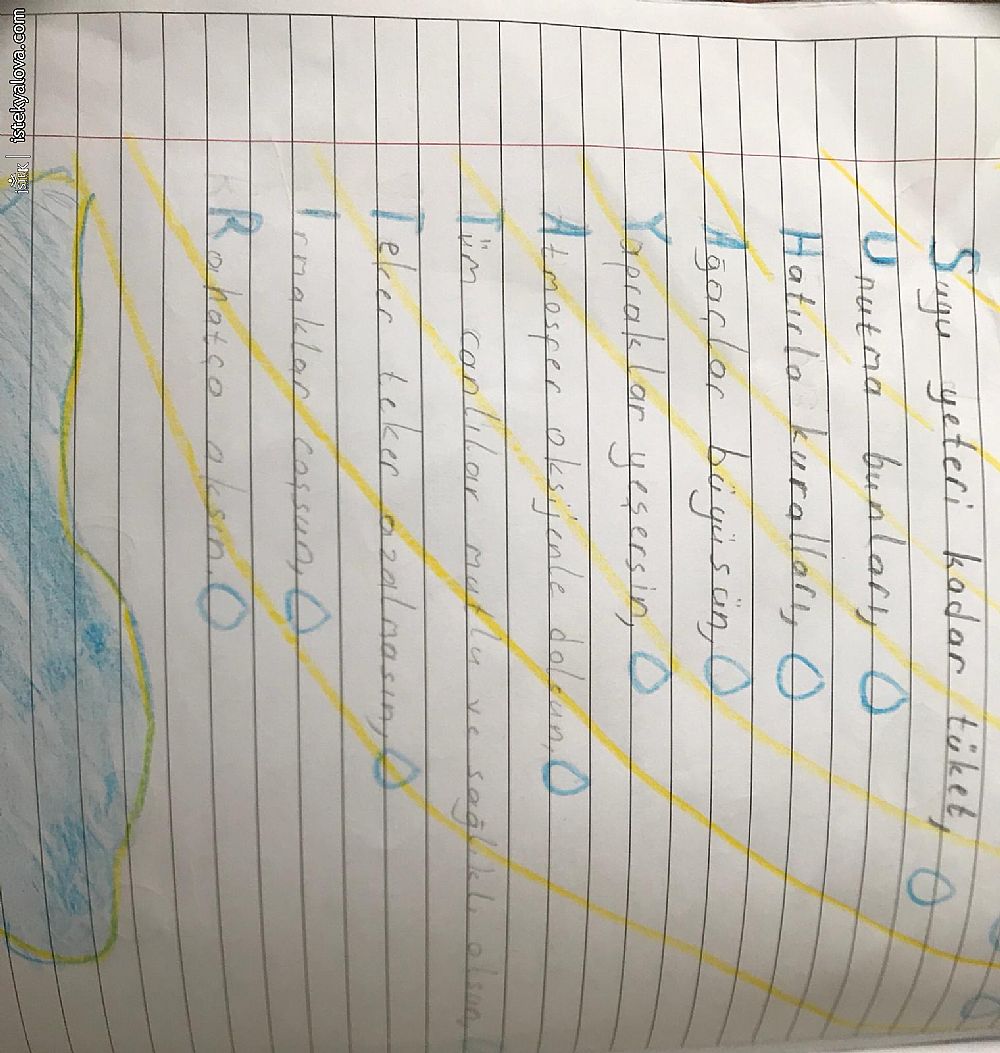 Suyu yeteri kadar tüket,
Unutma bunları,
Hatırla kuralları,
Ağaçlar büyüsün,
Yapraklar yeşersin,
Atmosfer oksijenle dolsun,
Tüm canlılar mutlu ve sağlıklı olsun,
Teker teker azalmasın,
Irmaklar coşsun,
Rahatça aksın.
IŞIK | istekyalova.com